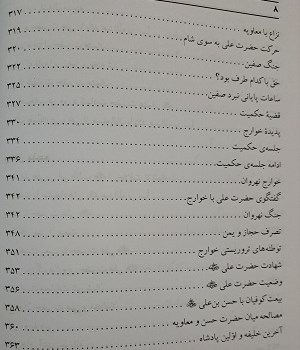 ۸
نزاع با معاویه ۳۱۷
حرکت حضرت علی به سوی شام ۳۱۹
جنگ صفین ۳۲۰
حق با کدام طرف بود؟ ۳۲۲
ساعات پایانی نبرد صفین ۳۲۵
قضیهٔ حکمیت ۳۲۷
پدیدهٔ خوارج ۳۳۰
جلسه‌ی حکمیت ۳۳۴
ادامه جلسه‌ی حکمیت ۳۳۶
خوارج نهروان ۳۴۱
گفتگوی حضرت علی با خوارج ۳۴۲
جنگ نهروان ۳۴۲
تصرف حجاز و یمن ۳۴۸
توطئه‌های تروریستی خوارج ۳۵۱
شهادت حضرت علی ۳۵۳
وضعیت حضرت علی ۳۵۶
بیعت کوفیان با حسن بن علی ۳۵۸
مصالحه میان حضرت حسن و معاویه ۳۶۰
آخرین خلیفه و اوّلین پادشاه ۳۶۳